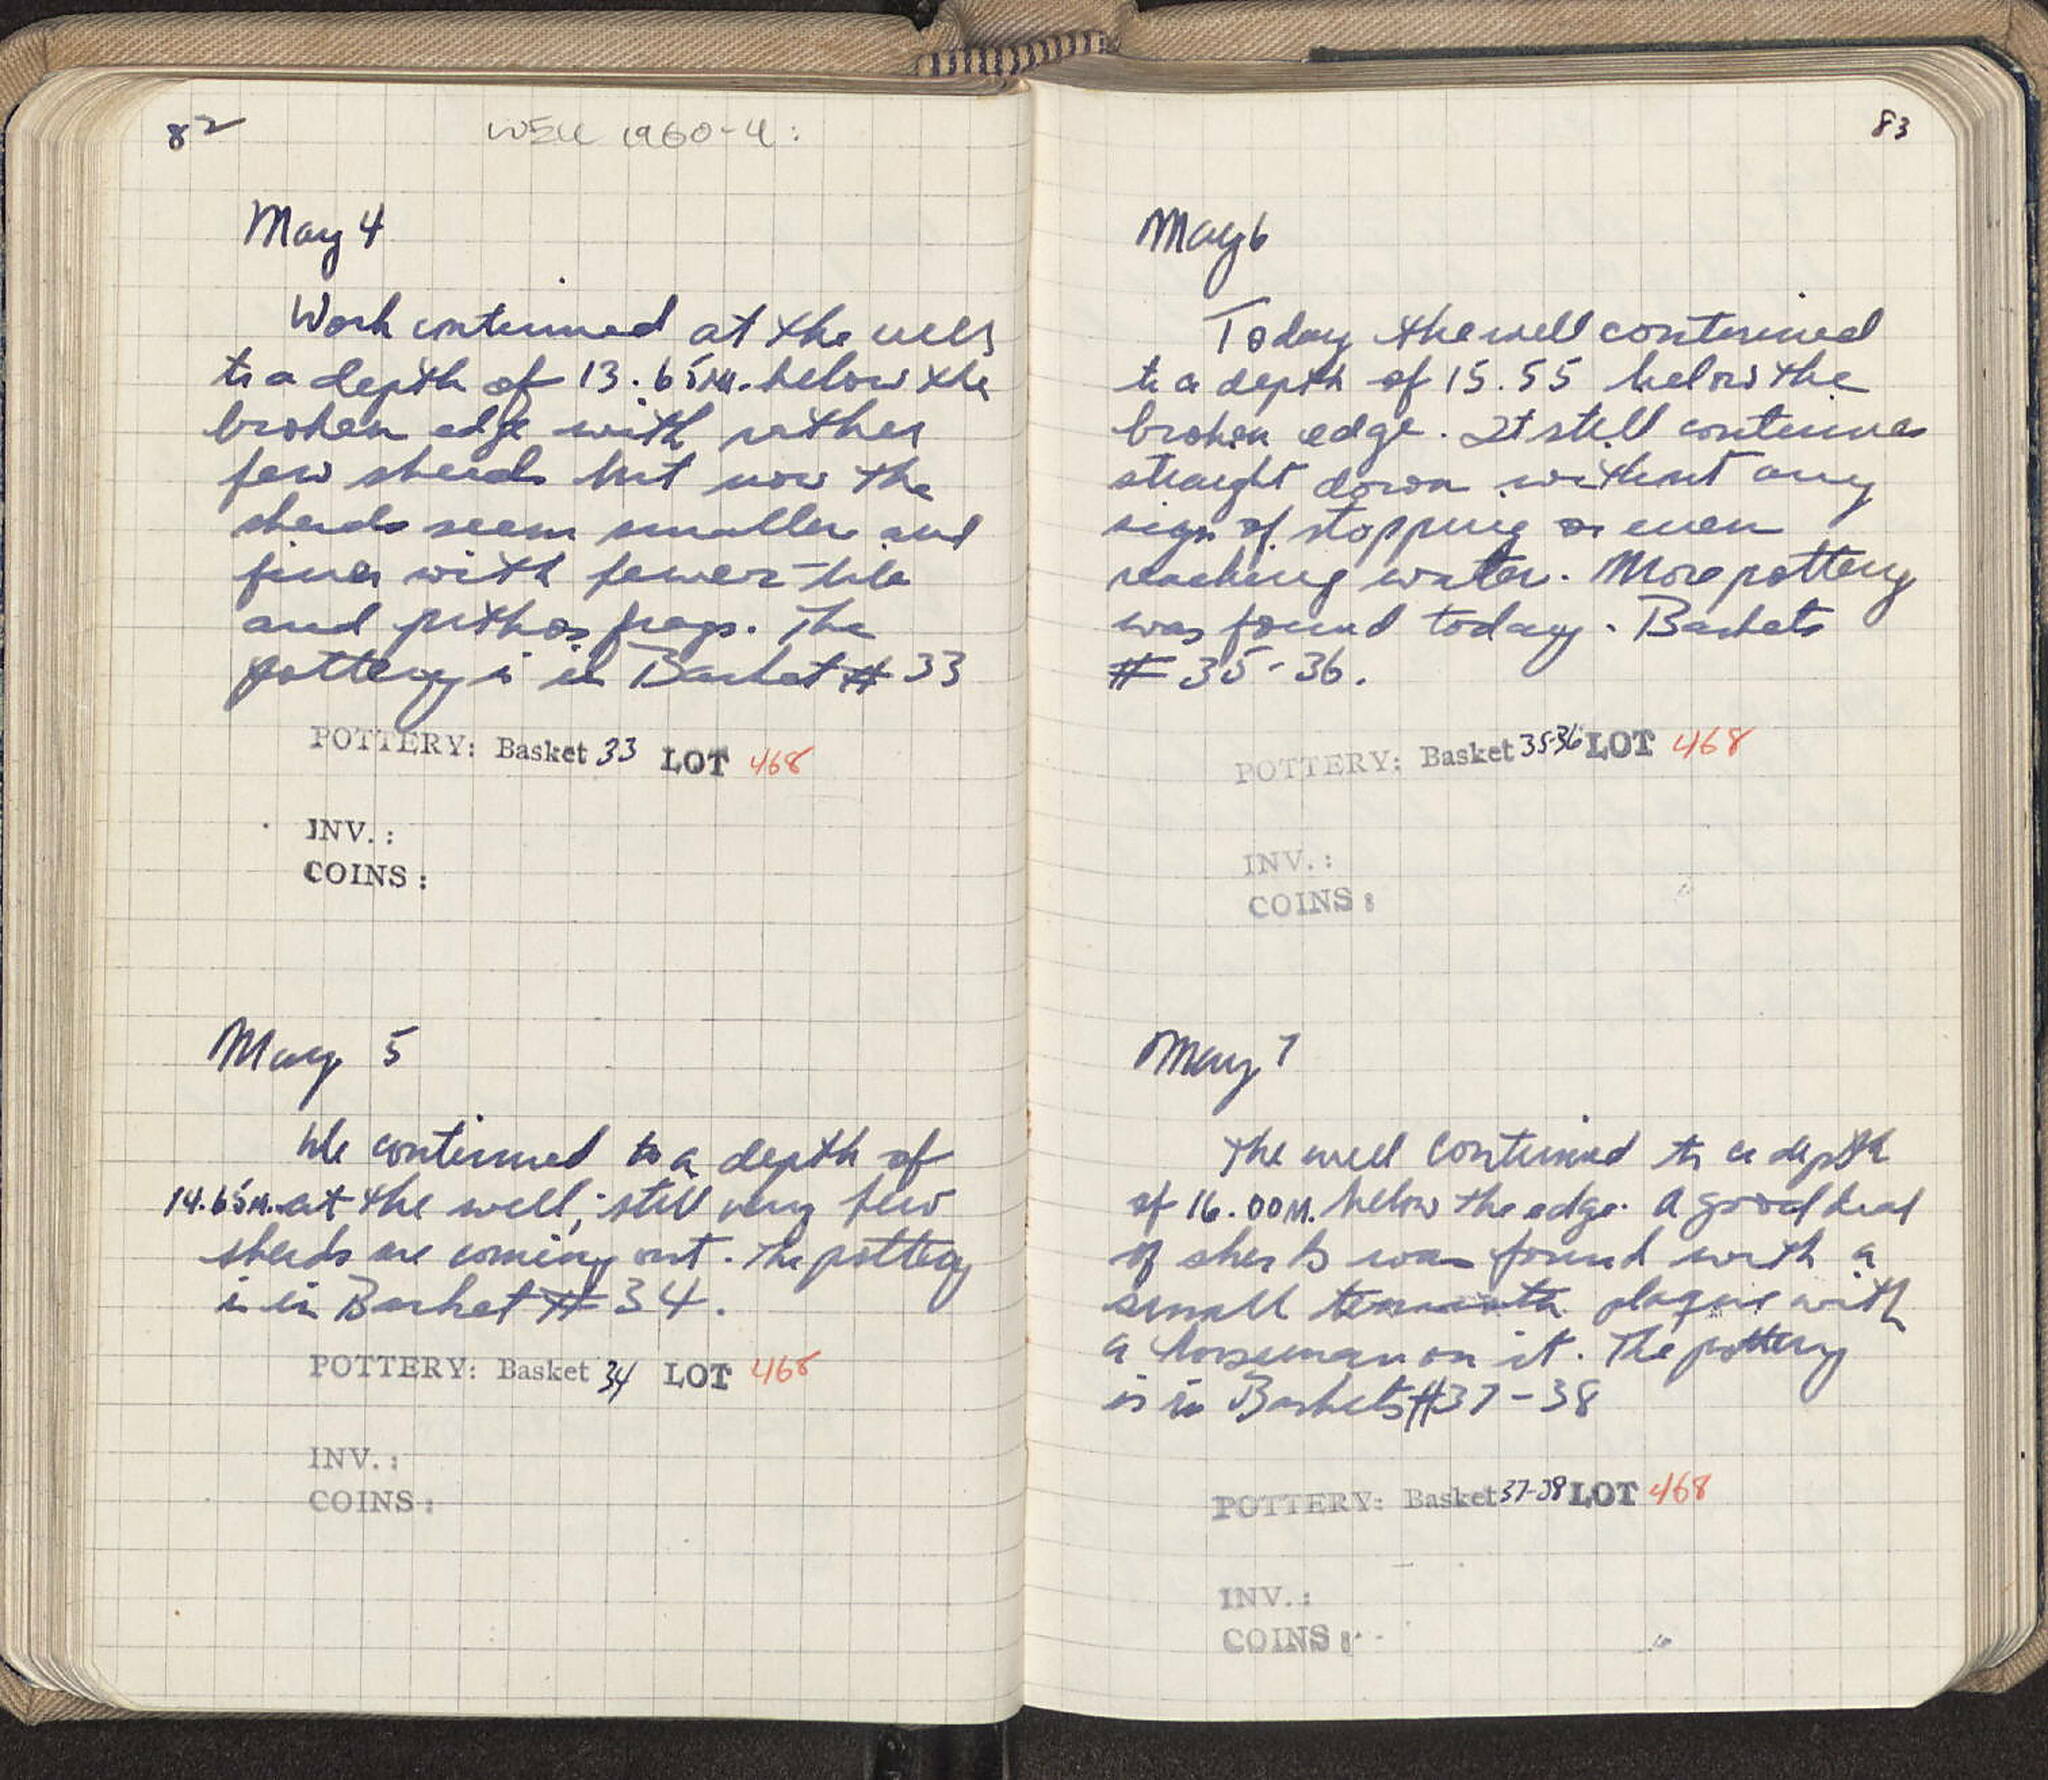 82
WELL 1960-4:
May 4
Work continued at the well
to a depth of 13.65M. below the
broken edge with rather
few sherds but now the
sherds seem smaller and
finer with fewer tile
and pithos frags. The
pottery is in Basket # 33
POTTERY: Basket 33 LOT 468
INV.:
COINS:
May 5
We continued to a depth of
14.65M. at the well; still very few
sherds are coming out. The pottery
is in Basket # 34.
POTTERY: Basket 34 LOT 468
INV.:
COINS:
83
May 6
Today the well continued
to a depth of 15.55 below the
broken edge. It still continues
straight down without any
sign of stopping or even
reaching water. More pottery
was found today. Baskets
# 35-36.
POTTERY: Basket 35-36 LOT 468
INV.:
COINS:
May 7
The well continued to a depth
of 16.00M. below the edge. A good deal
of sherds was found with a
small plaque with
a horseman on it. The pottery
is in Baskets #37-38
POTTERY: Basket 37-38 LOT 468
INV.:
COINS: